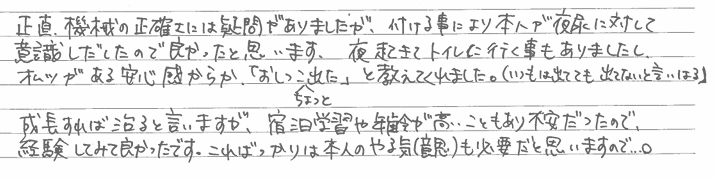 正直、機械の正確さには疑問がありましたが、付ける事により本人が夜尿に対して
意識しだしたので良かったと思います、 夜起きてトイレに行く事もありましたし、
オムツがある安心感からか、「おしっこ出た」と教えてくれました。(いつもは出てても出てないと言いはる)
ちょっと
成長すれば治ると言いますが、宿泊学習や年齢が高いこともあり不安だったので、
経験してみて良かったです。こればっかりは本人のやる気(意思)も必要だと思いますので…。